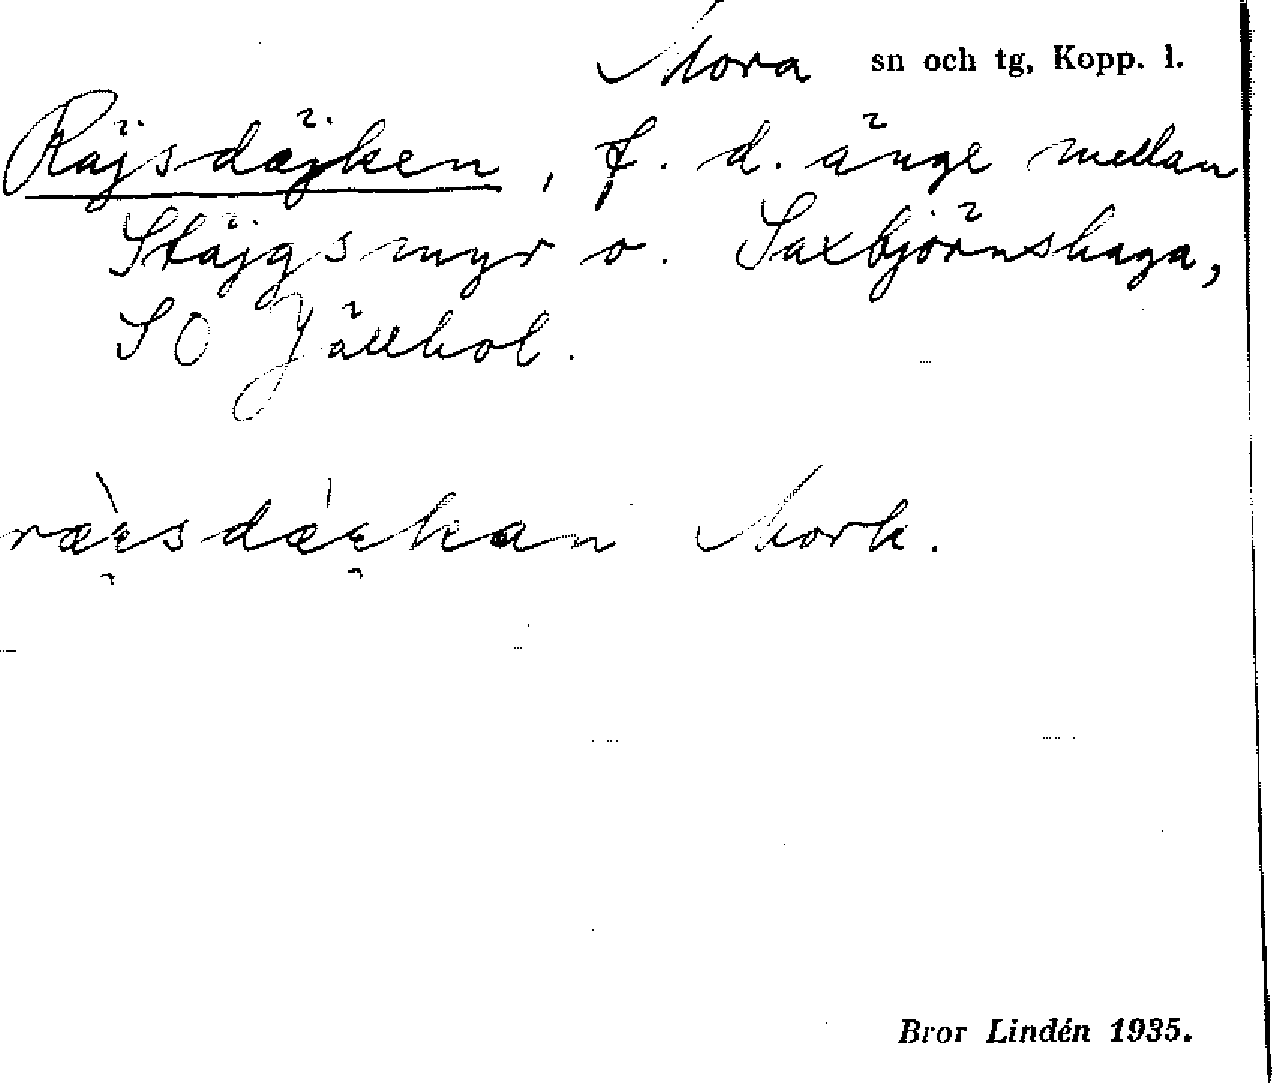 Mora sn och tg, Kopp. l.
Räjsdäjken, f. d. änge mellan
Stäjgsmyr o. Saxbjörnshaga,
SO Jällkol.
Mork.
Bror Lindén 1935.